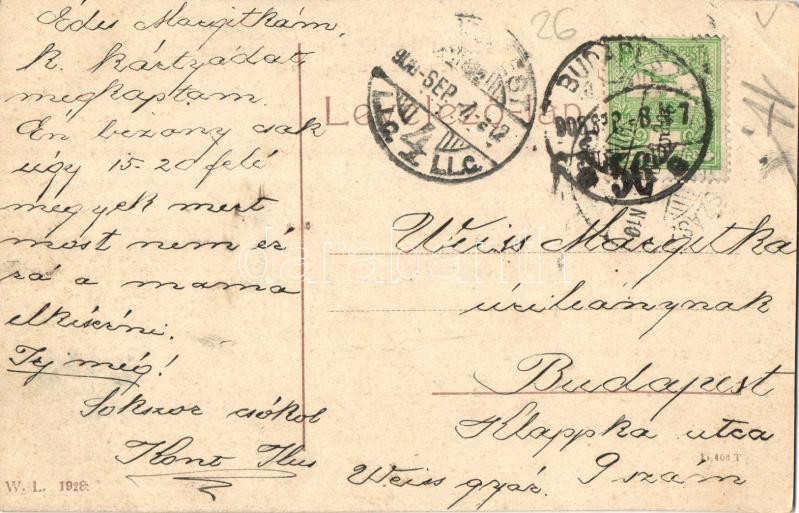 26
Édes Margitkám,
k. kártyádat
megkaptam.
Én bizony csak
úgy 15-20 felé
megyek mert
most nem ér
rá a mama
elkisérni.
Irj még!
Sokszor csókol
Kont Ilus
W. L. 1928.
Levelező-lap
908 SEP
4
BUDAPEST
908
56
Weiss Margitka
úrileánynak
Budapest
Klappka utca
9 szám
Weiss gyár.
darabanth